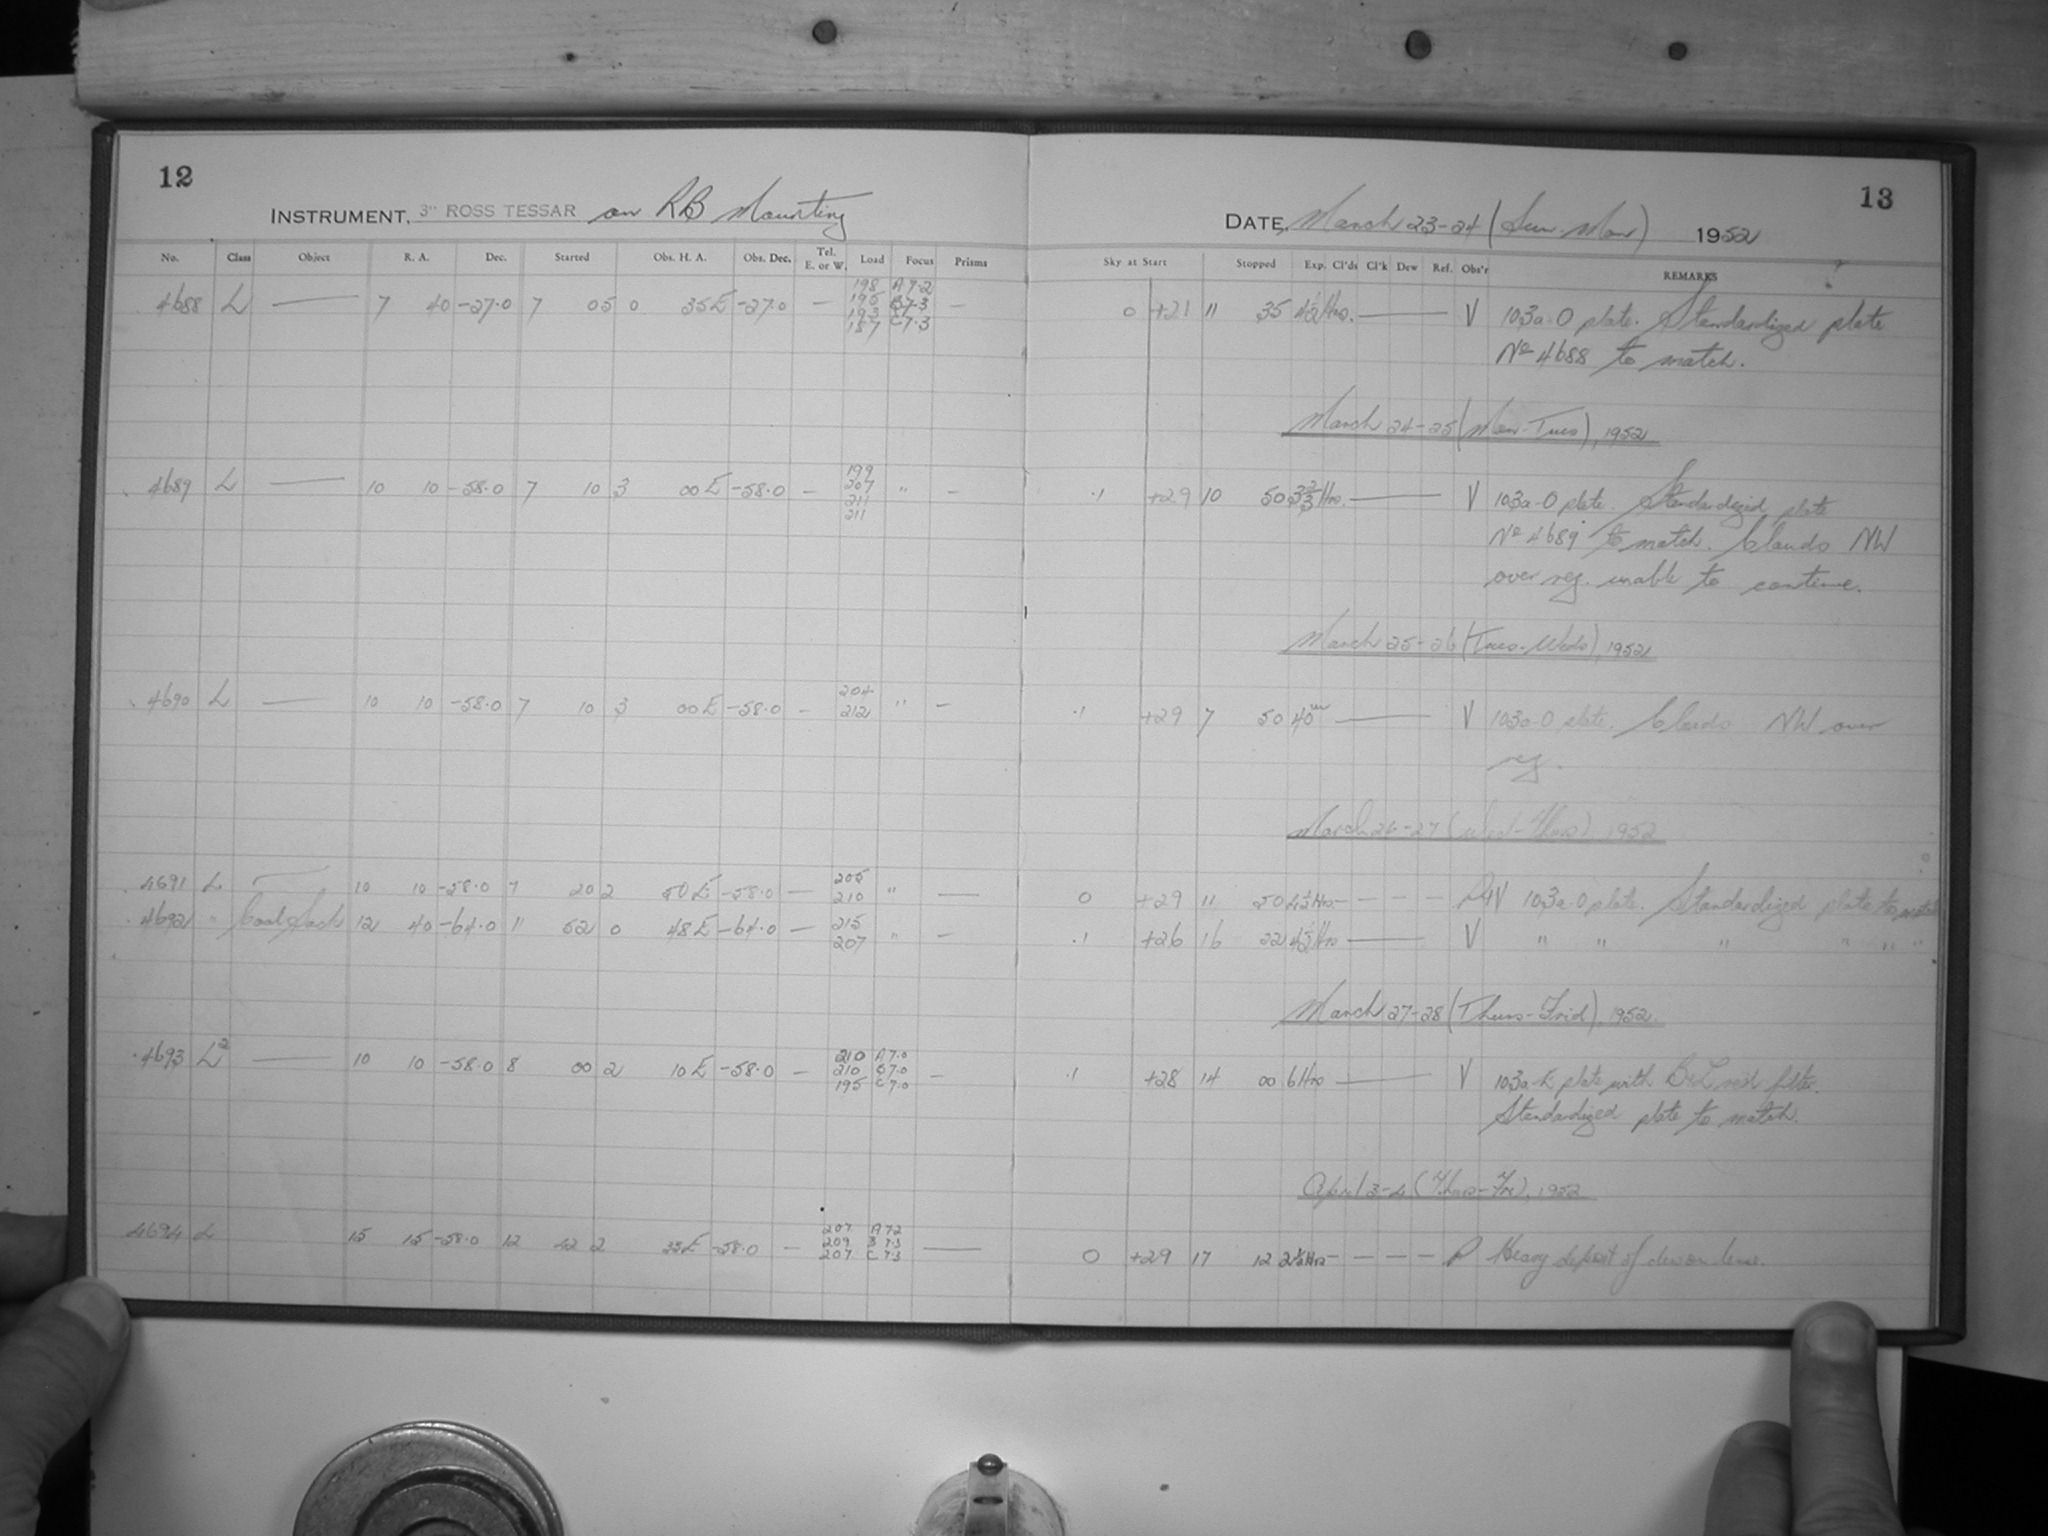 12
INSTRUMENT, 3" ROSS TESSAR on RB Mounting
No. Class Object R. A. Dec. Started Obs. H. A. Obs. Dec. Tel. E. or W. Load Focus Prisms
4688 L — 7 40 -27.0 7 05 0 35E -27.0 — 198 A 7.2 —
195 B 7.3
193 C 7.3
187
4689 L — 10 10 -58.0 7 10 3 00E -58.0 — 199 " —
207
211
211
4690 L — 10 10 -58.0 7 10 3 00E -58.0 — 204 " —
212
4691 L — 10 10 -58.0 7 20 2 50E -58.0 — 205 " —
210
4692 " Coal Sack 12 40 -64.0 11 52 0 48E -64.0 — 215 " —
207
4693 L² — 10 10 -58.0 8 00 2 10E -58.0 — 210 A 7.0 —
210 B 7.0
195 C 7.0
4694 L 15 15 -58.0 12 42 2 33E -58.0 — 207 A 7.2 —
209 B 7.3
207 C 7.3
13
DATE, March 23-24 (Sun-Mon) 1952
Sky at Start Stopped Exp. Cl'ds Cl'k Dew Ref. Obs'r REMARKS
0 +21 11 35 4½ Hrs. — V 103a-O plate. Standardized plate
Nº 4688 to match.
March 24-25 (Mon-Tues), 1952
.1 +29 10 50 3⅔ Hrs. — V 103a-O plate. Standardized plate
Nº 4689 to match. Clouds NW
over reg. unable to continue.
March 25-26 (Tues-Weds), 1952
.1 +29 7 50 40m — V 103a-O plate. Clouds NW over
reg.
March 26-27 (Wed-Thurs), 1952
0 +29 11 50 4½ Hrs — — — — V 103a-O plate. Standardized plate to match
.1 +26 16 22 4½ Hrs — V " " " " " "
March 27-28 (Thurs-Frid), 1952
.1 +28 14 00 6 Hrs — V 103a-E plate with B&L red filter.
Standardized plate to match.
April 3-4 (Thurs-Fri), 1952
0 +29 17 12 Hrs — — — — P Heavy deposit of dew on lens.